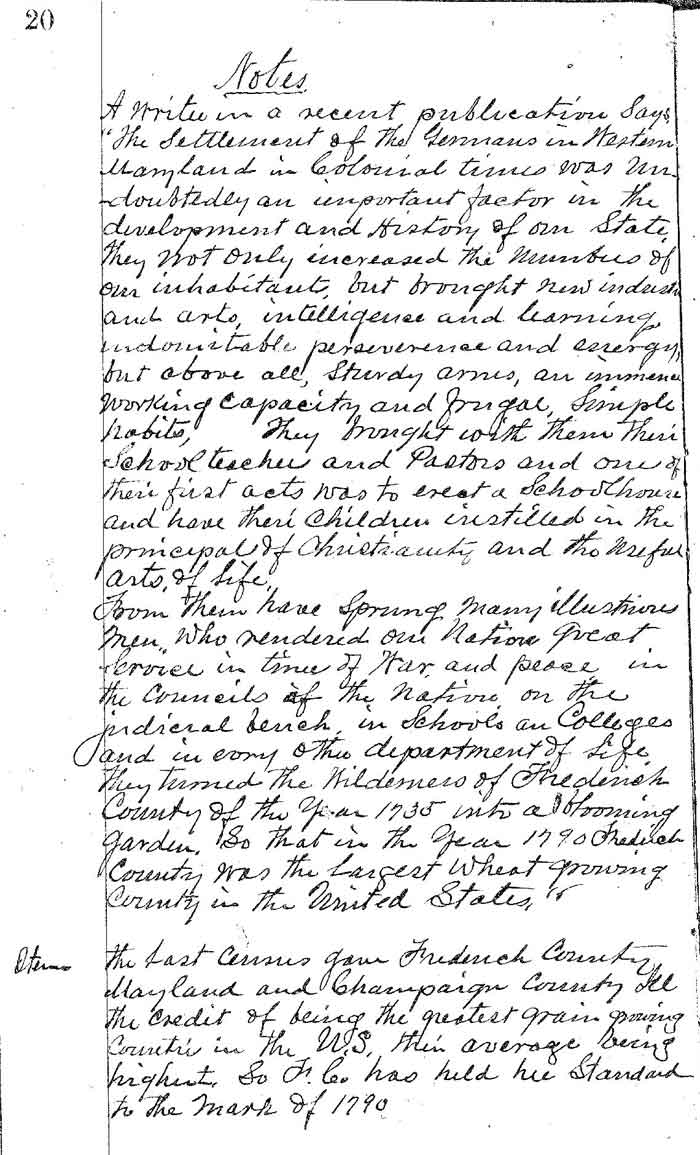 20
Notes
A writer in a recent publication Says
"The Settlement of the Germans in Western
Maryland in Colonial times was un-
-doubtedly an important factor in the
development and History of our State,
they not only increased the Numbers of
our inhabitants, but brought new industri
and arts, intelligence and learning,
indomitable perseverence and energy,
but above all, Sturdy arms, an immence
working capacity and frugal, Simple
habits, They brought with them their
School teacher and Pastors and one of
their first acts was to erect a Schoolhouse
and have their Children instilled in the
principal of Christianity and the useful
arts, of Life,
From them have Sprung many illustrious
Men, who rendered our Nation Great
Service in time of War, and peace in
the Councils of the Nation, on the
judicial bench, in Schools an Colleges
and in evry other department of Life
they turned the Wilderness of Frederick
County of the Year 1735 into a blooming
garden, So that in the Year 1790 Frederick
County was the Largest Wheat growing
County in the United States,"
Items
the Last Census gave Frederick County,
Mayland and Champaign County Ill
the credit of being the greatest grain growing
Countie in the U.S. their average being
highest, So F. Co has held her Standard
to the Mark of 1790